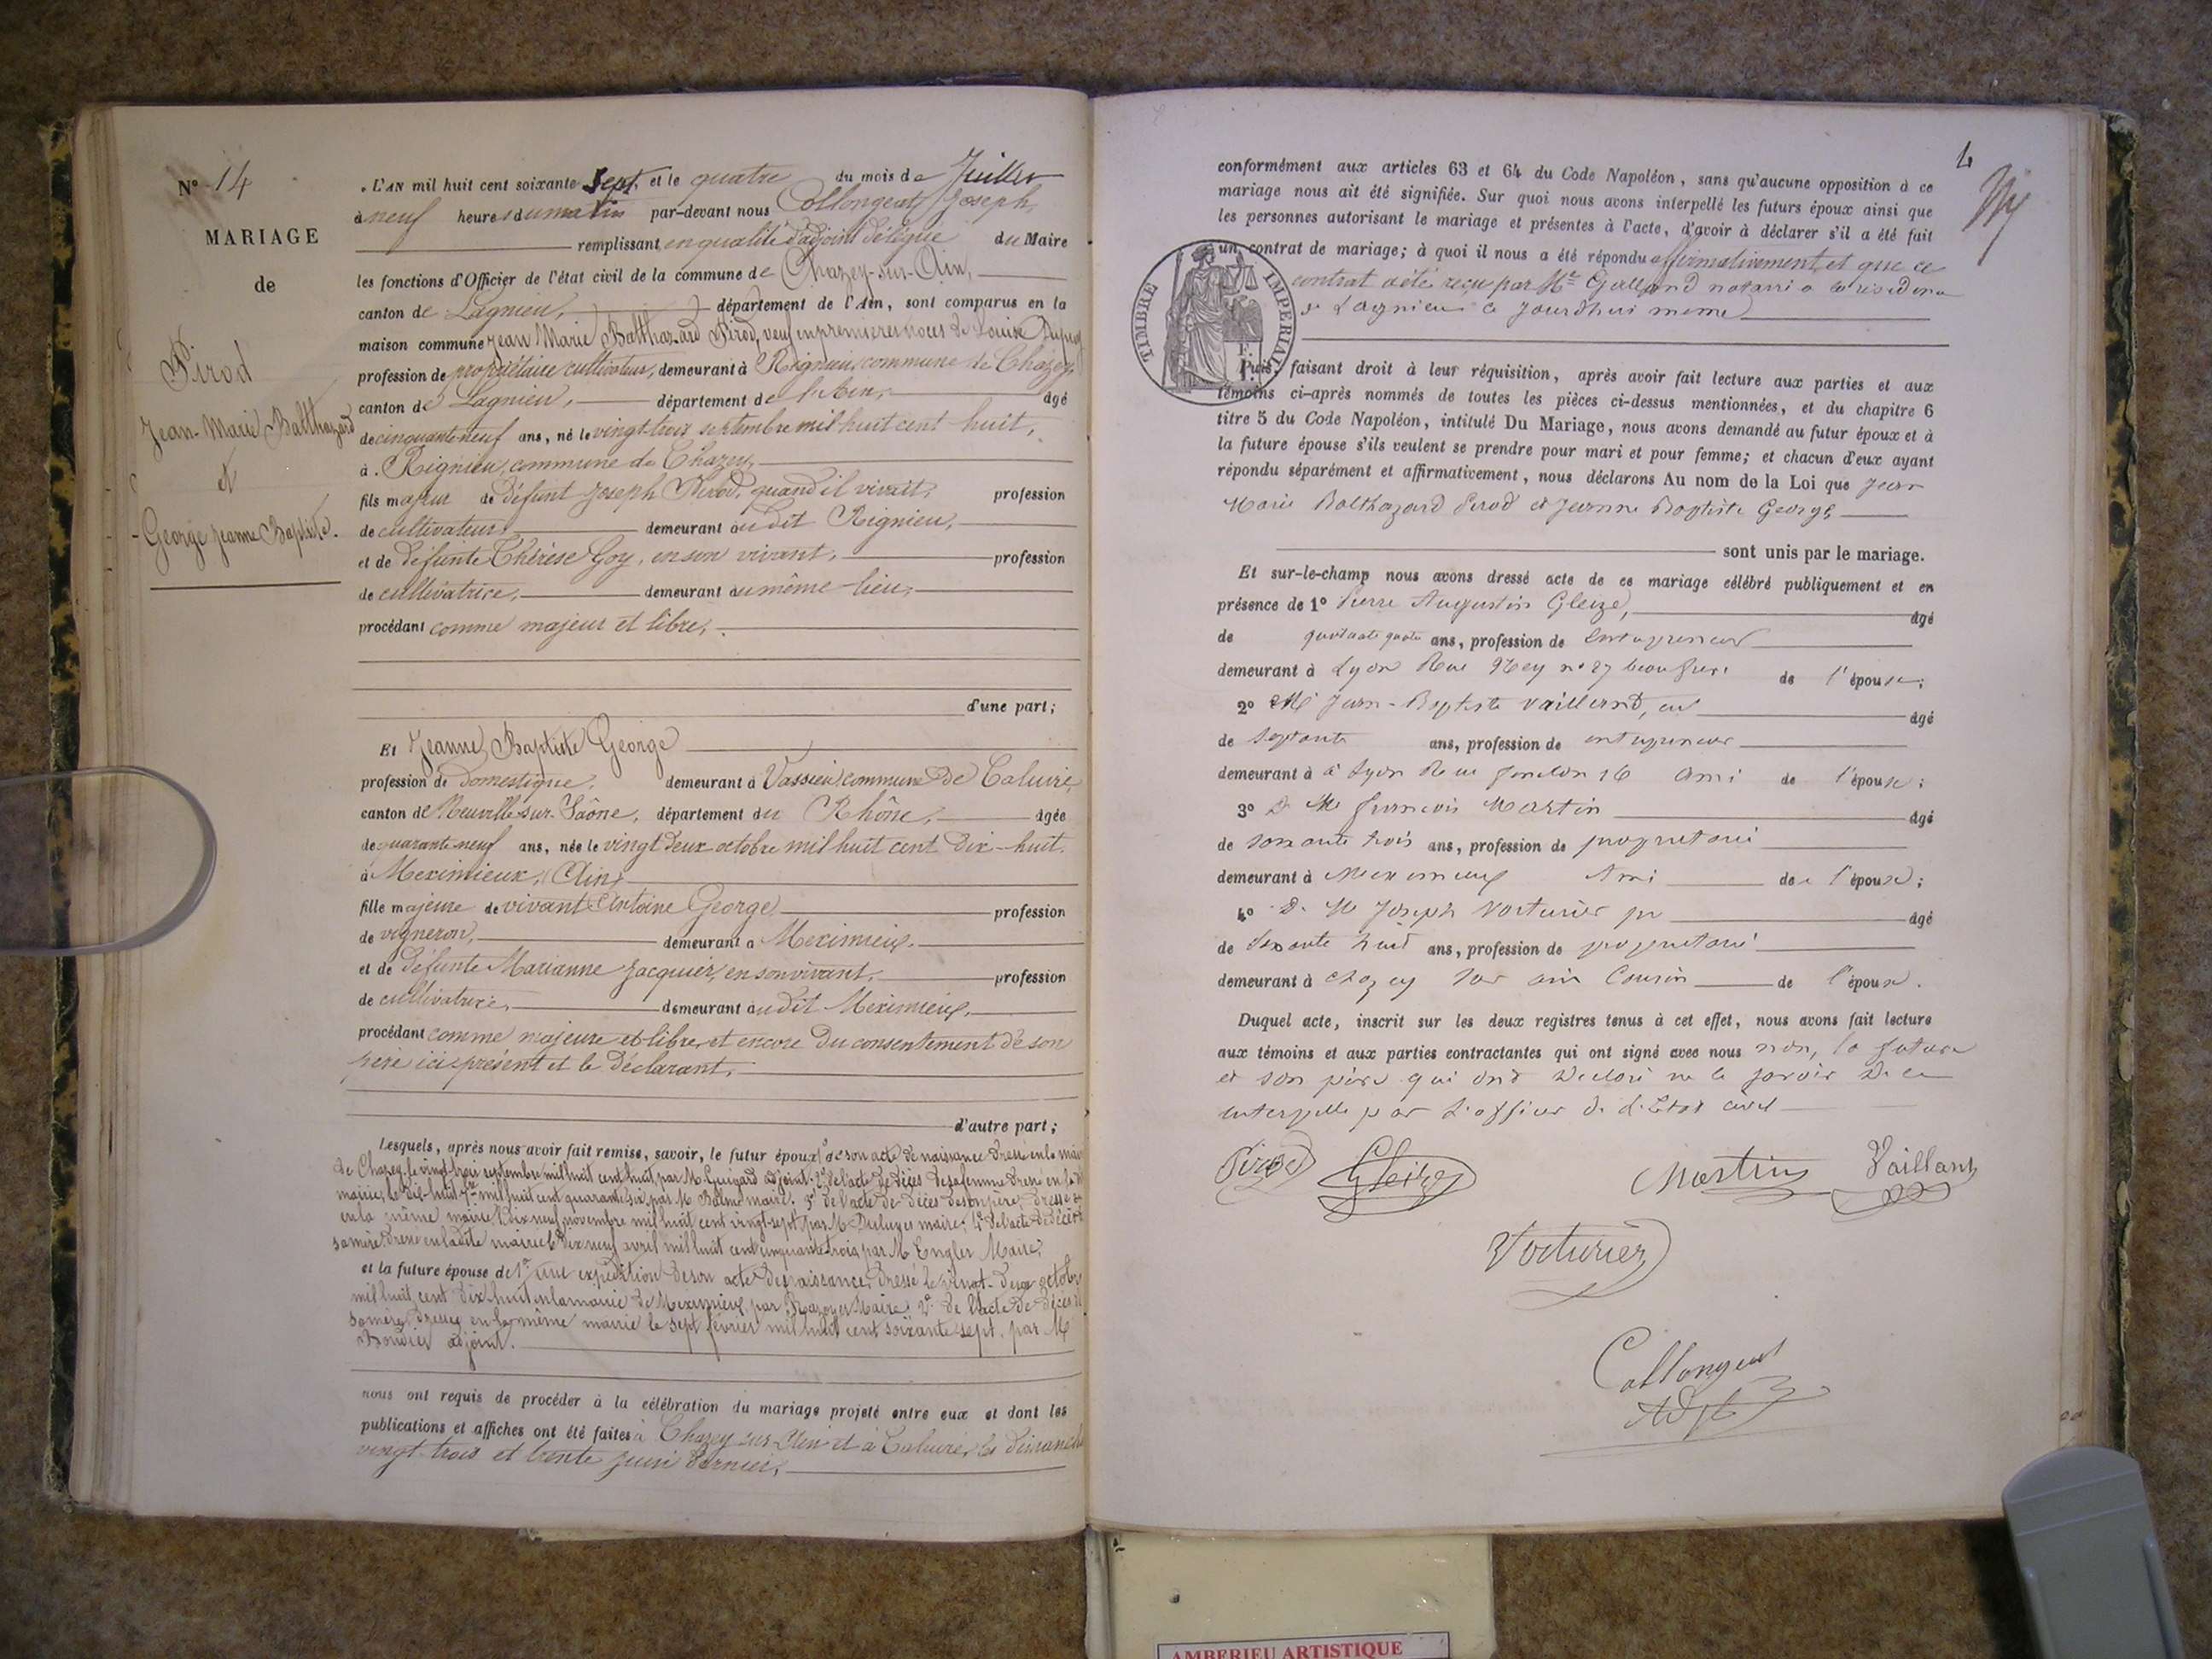 N° 14
MARIAGE
de
Pirod
Jean-Marie Balthazard
et
George Jeanne Baptiste.
L'AN mil huit cent soixante sept, et le quatre du mois de Juillet
à neuf heures du matin par-devant nous Collongeat, Joseph,
remplissant en qualité d'adjoint délégué du Maire
les fonctions d'Officier de l'état civil de la commune de Chazey-sur-Ain,
canton de Lagnieu, département de l'Ain, sont comparus en la
maison commune Jean Marie Balthazard Pirod, veuf en premières noces de Louise Dupuy
profession de propriétaire cultivateur, demeurant à Rignieu, commune de Chazey,
canton de Lagnieu, département de l'Ain, âgé
de cinquante neuf ans, né le vingt-trois septembre mil huit cent huit,
à Rignieu, commune de Chazey,
fils majeur de défunt Joseph Pirod, quand il vivait, profession
de cultivateur, demeurant audit Rignieu,
et de défunte Thérèse Goy, en son vivant, profession
de cultivatrice, demeurant au même lieu,
procédant comme majeur et libre,
d'une part;
Et Jeanne Baptiste George
profession de domestique, demeurant à Vassieu, commune de Caluire,
canton de Neuville-sur-Saône, département du Rhône, âgée
de quarante-neuf ans, née le vingt deux octobre mil huit cent dix-huit,
à Meximieux, (Ain)
fille majeure de vivant Antoine George profession
de vigneron, demeurant à Meximieux,
et de défunte Marianne Jacquier, en son vivant, profession
de cultivatrice, demeurant audit Meximieux,
procédant comme majeure et libre, et encore du consentement de son
père ici présent et le déclarant,
d'autre part;
Lesquels, après nous avoir fait remise, savoir, le futur époux 1° de son acte de naissance dressé en la mairie
de Chazey, le vingt-trois septembre mil huit cent huit, par M. Guigard adjoint. 2° de l'acte de décès de sa femme dressé en la dite
mairie, le dix-huit mil huit cent quarante six, par M. Balme maire. 3° de l'acte de décès de son père, dressé
en la même mairie le dix neuf novembre mil huit cent vingt-sept, par M. maire; 4° de l'acte de décès de
sa mère dressé en ladite mairie le dix neuf avril mil huit cent cinquante trois, par M. Engler Maire;
et la future épouse de 1° une expédition de son acte de naissance, dressé le vingt-deux octobre
mil huit cent dix huit en la mairie de Meximieux, par Maire; 2° de l'acte de décès de
sa mère, dressé en la même mairie le sept février mil huit cent soixante sept, par M
adjoint.
nous ont requis de procéder à la célébration du mariage projeté entre eux et dont les
publications et affiches ont été faites à Chazey-sur-Ain et à Caluire, les dimanches
vingt-trois et trente juin dernier,
conformément aux articles 63 et 64 du Code Napoléon, sans qu'aucune opposition à ce
mariage nous ait été signifiée. Sur quoi nous avons interpellé les futurs époux ainsi que
les personnes autorisant le mariage et présentes à l'acte, d'avoir à déclarer s'il a été fait
un contrat de mariage; à quoi il nous a été répondu affirmativement, et que ce
contrat a été reçu par Me Galland notaire a la résidence
de Lagnieu ce jourdhui meme
TIMBRE IMPERIAL
Puis, faisant droit à leur réquisition, après avoir fait lecture aux parties et aux
témoins ci-après nommés de toutes les pièces ci-dessus mentionnées, et du chapitre 6
titre 5 du Code Napoléon, intitulé Du Mariage, nous avons demandé au futur époux et à
la future épouse s'ils veulent se prendre pour mari et pour femme; et chacun d'eux ayant
répondu séparément et affirmativement, nous déclarons Au nom de la Loi que Jean
Marie Balthazard Pirod et Jeanne Baptiste George
sont unis par le mariage.
Et sur-le-champ nous avons dressé acte de ce mariage célébré publiquement et en
présence de 1° Pierre Augustin Gleize, âgé
de ans, profession de entrepreneur
demeurant à Lyon Rue Ney n° 27 beau frere de l'épouse;
2° M Jean-Baptiste Vailland, âgé
de Septante ans, profession de entrepreneur
demeurant à a Lyon Rue 16 ami de l'épouse;
3° M francois Martin âgé
de soixante trois ans, profession de propriétaire
demeurant à Meximieux Ami de l'épouse;
4° M Joseph Voiturier âgé
de soixante huit ans, profession de proprietaire
demeurant à chazey sur ain Cousin de l'épouse.
Duquel acte, inscrit sur les deux registres tenus à cet effet, nous avons fait lecture
aux témoins et aux parties contractantes qui ont signé avec nous non, la future
et son père qui ont declaré ne le savoir de ce
interpelle par L'officier de L'Etat civil
Pirod Gleize Martin Vaillant
Voiturier
Collongeat
Adjt
AMBERIEU ARTISTIQUE